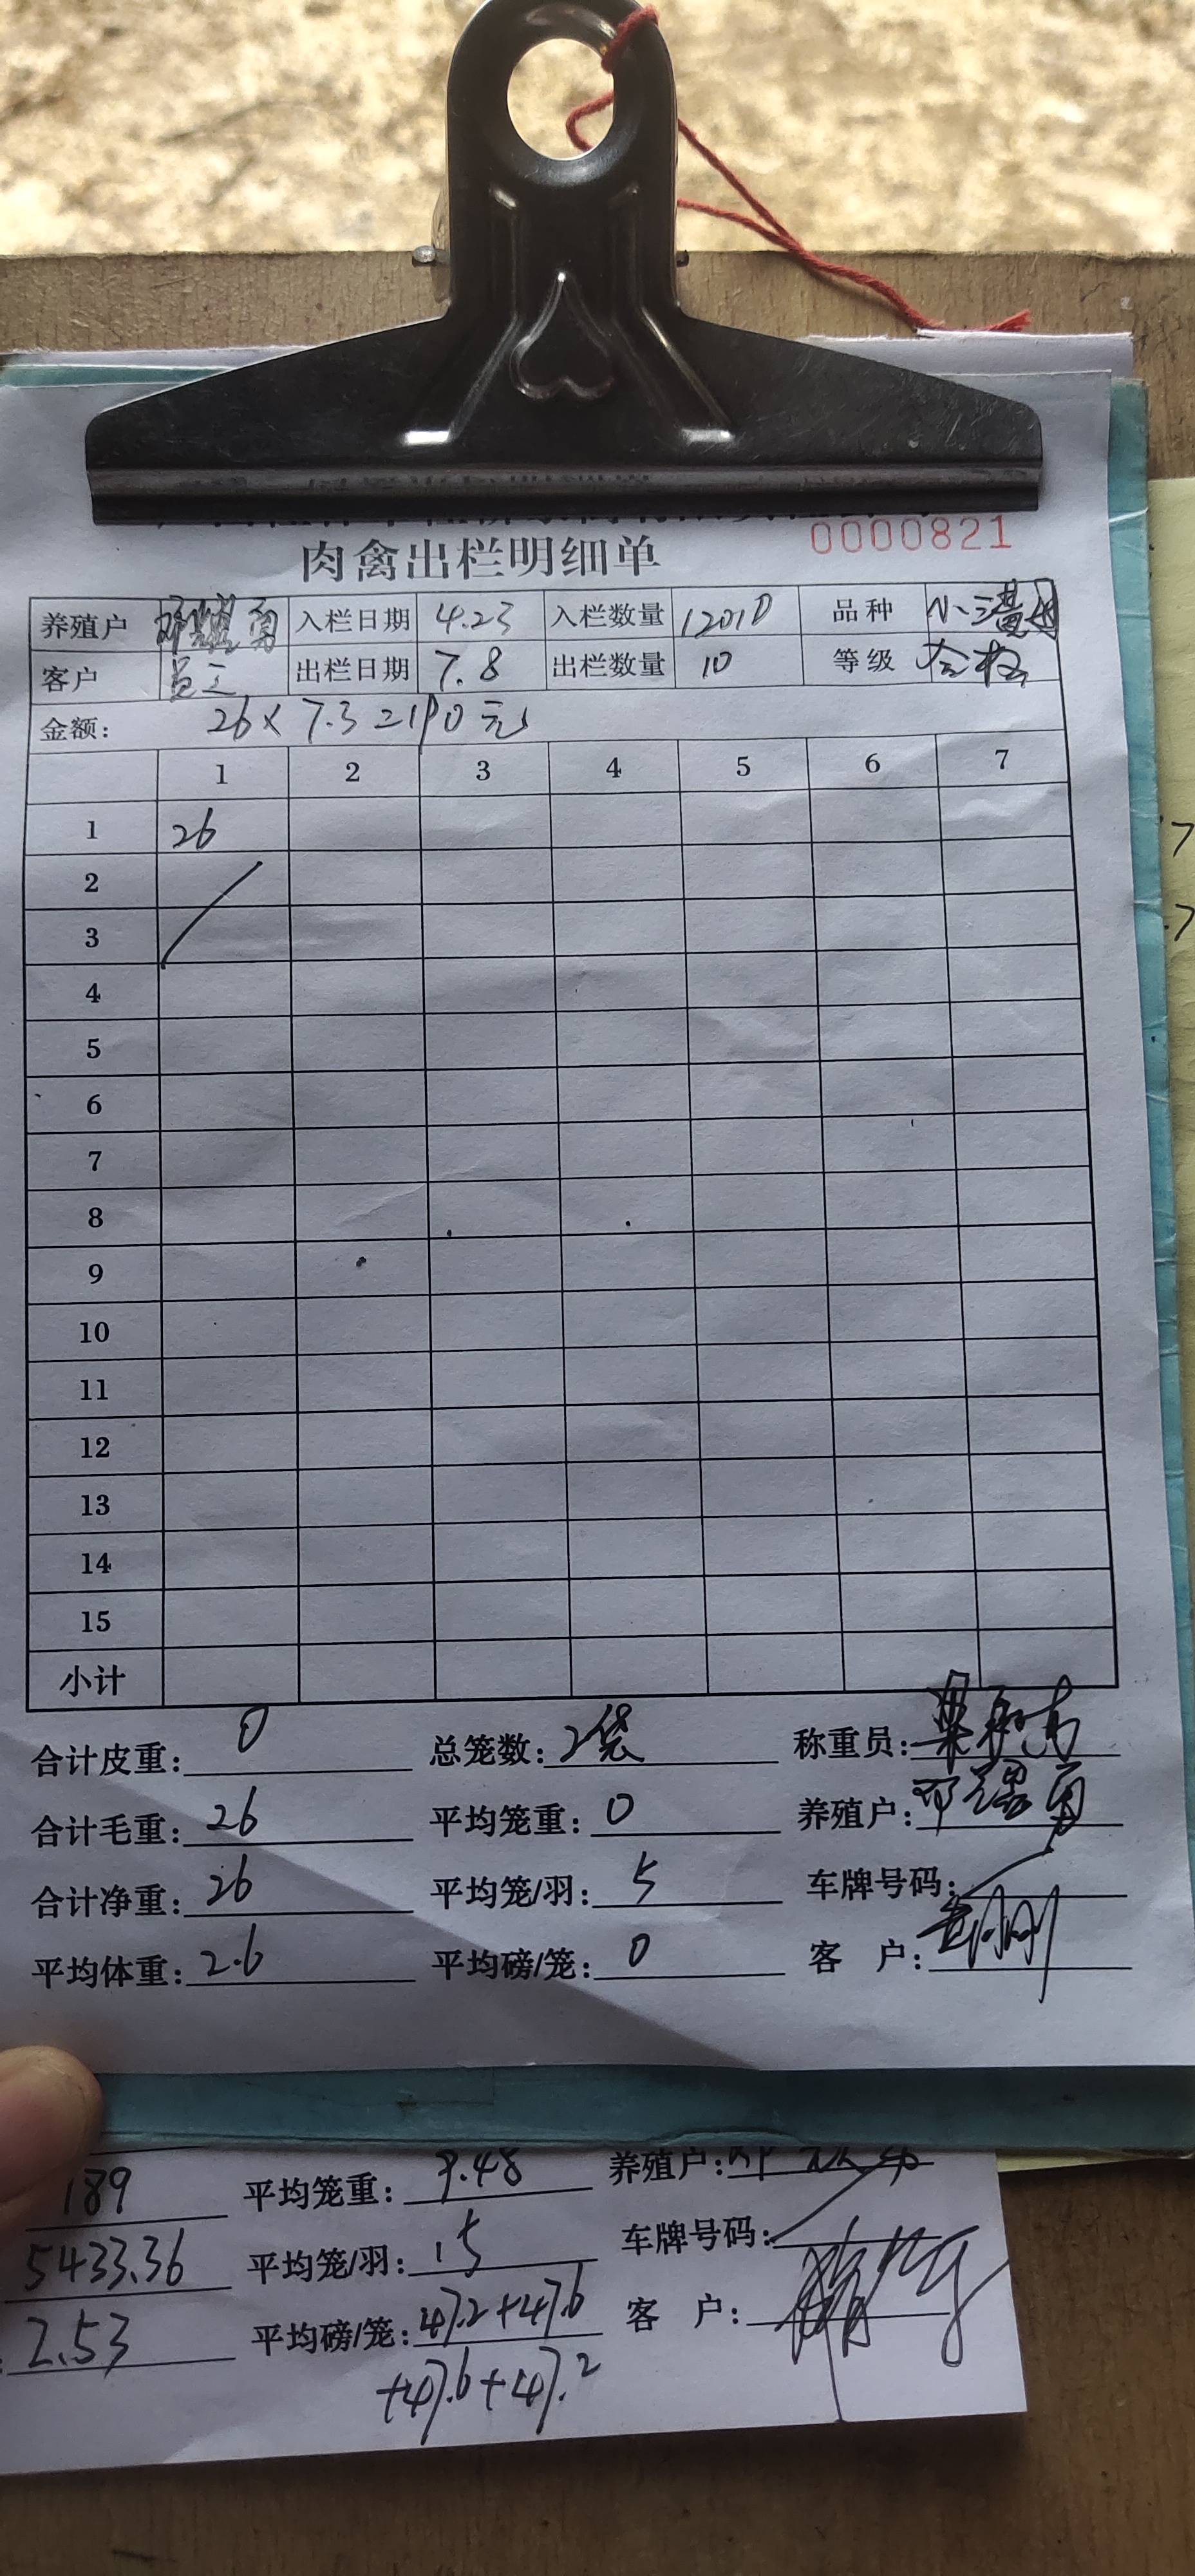 0000821
肉禽出栏明细单
养殖户 邓耀勇 入栏日期 4.23 入栏数量 12010 品种 小三黄母
客户 出栏日期 7.8 出栏数量 10 等级 合格
金额: 26×7.3=190元
1 2 3 4 5 6 7
1 26
2
3
4
5
6
7
8
9
10
11
12
13
14
15
小计
合计皮重: 0 总笼数: 2袋 称重员:
合计毛重: 26 平均笼重: 0 养殖户: 邓耀勇
合计净重: 26 平均笼/羽: 5 车牌号码:
平均体重: 2.6 平均磅/笼: 0 客 户:
189 平均笼重: 9.48 养殖户:
5433.36 平均笼/羽: 15 车牌号码:
2.53 平均磅/笼: 47.2+47.6 客 户:
+47.6+47.2